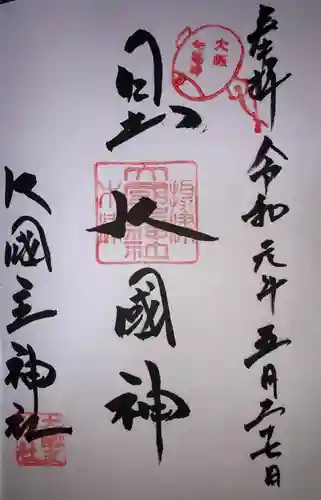 奉拝 令和元年五月二十七日
大阪
七福神
日出大國神
大國主神社